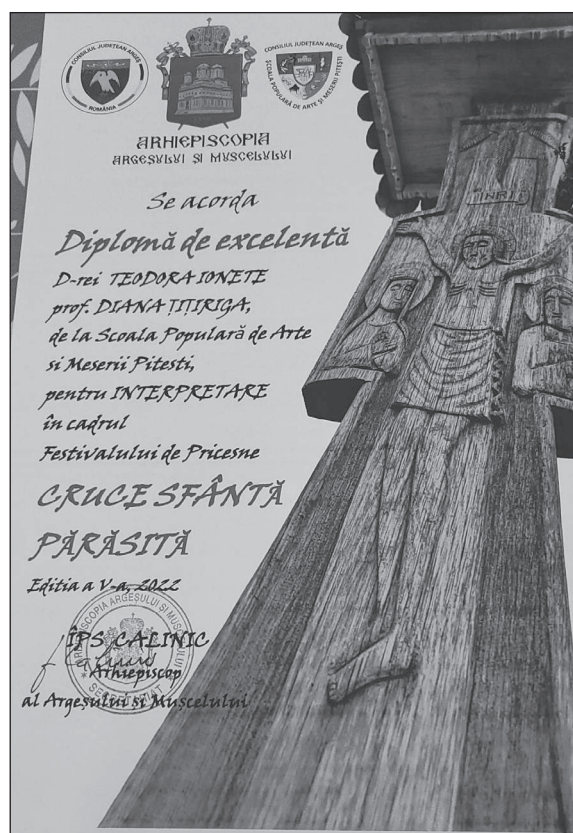 CONSILIUL JUDEȚEAN ARGEȘ
ROMÂNIA
CONSILIUL JUDEȚEAN ARGEȘ
ȘCOALA POPULARĂ DE ARTE ȘI MESERII PITEȘTI
ARHIEPISCOPIA
ARGEȘULUI ȘI MUSCELULUI
Se acorda
Diplomă de excelentă
D-rei TEODORA IONETE
prof. DIANA ȚIȚIRIGA,
de la Scoala Populară de Arte
si Meserii Pitesti,
pentru INTERPRETARE
în cadrul
Festivalului de Pricesne
CRUCE SFÂNTĂ
PĂRĂSITĂ
Editia a V-a, 2022
ARHIEPISCOPIA ARGEȘULUI ȘI MUSCELULUI
SECRETARIAT
ÎPS CALINIC
Arhiepiscop
al Argeșului si Mușcelului
INRI